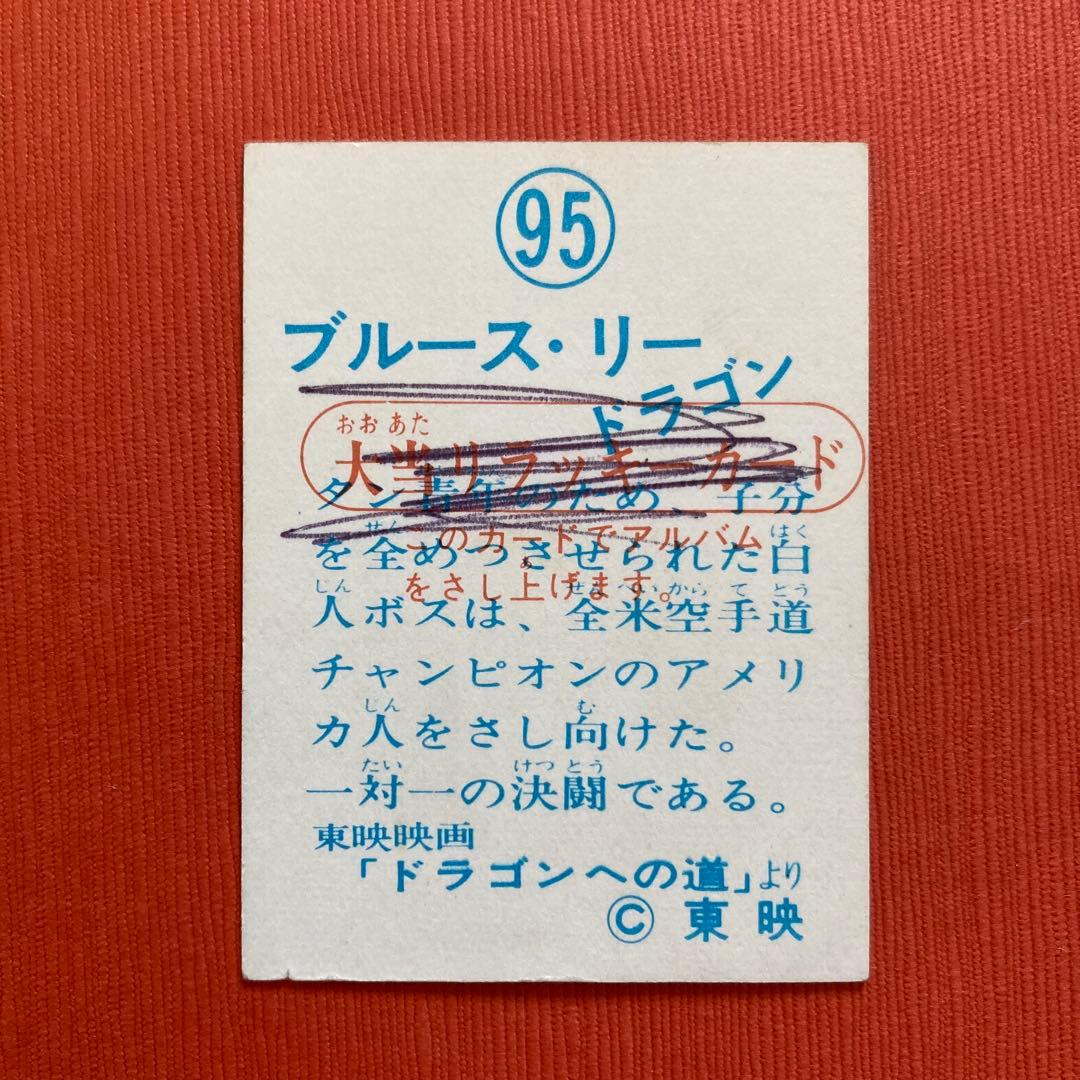 95
ブルース・リー
ドラゴン
おおあた
大当リラッキーカード
タン青年のため、子分
せん はく
を全めつさせられた白
このカードでアルバム
あ
をさし上げます。
じん ぜんべいからてとう
人ボスは、全米空手道
チャンピオンのアメリ
じん む
カ人をさし向けた。
たい けつとう
一対一の決闘である。
東映映画
「ドラゴンへの道」より
©東映